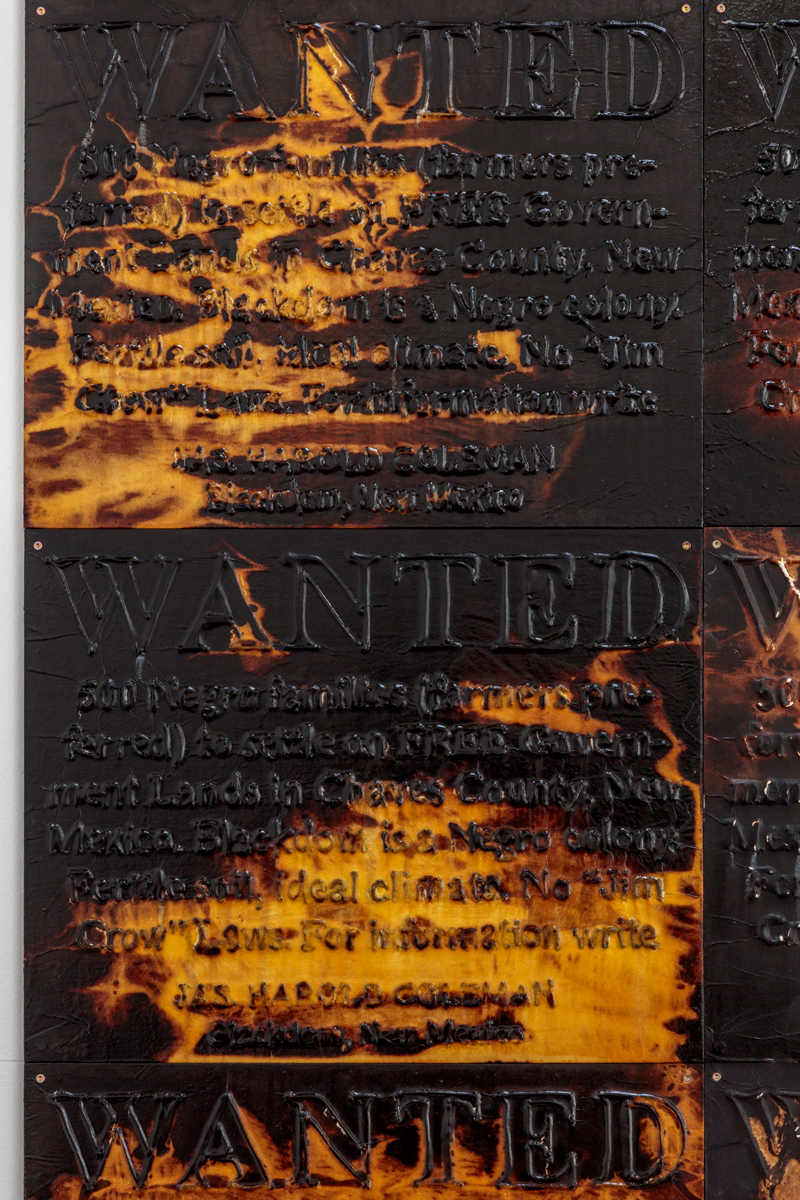 WANTED
500 Negro families (farmers pre-
ferred) to settle on FREE Govern-
ment Lands in Chaves County, New
Mexico. Blackdom is a Negro colony.
Fertile soil, ideal climate. No "Jim
Crow" Laws. For information write
JAS. HAROLD COLEMAN
Blackdom, New Mexico
WANTED
500 Negro families (farmers pre-
ferred) to settle on FREE Govern-
ment Lands in Chaves County, New
Mexico. Blackdom is a Negro colony.
Fertile soil, ideal climate. No "Jim
Crow" Laws. For information write
JAS. HAROLD COLEMAN
Blackdom, New Mexico
WANTED